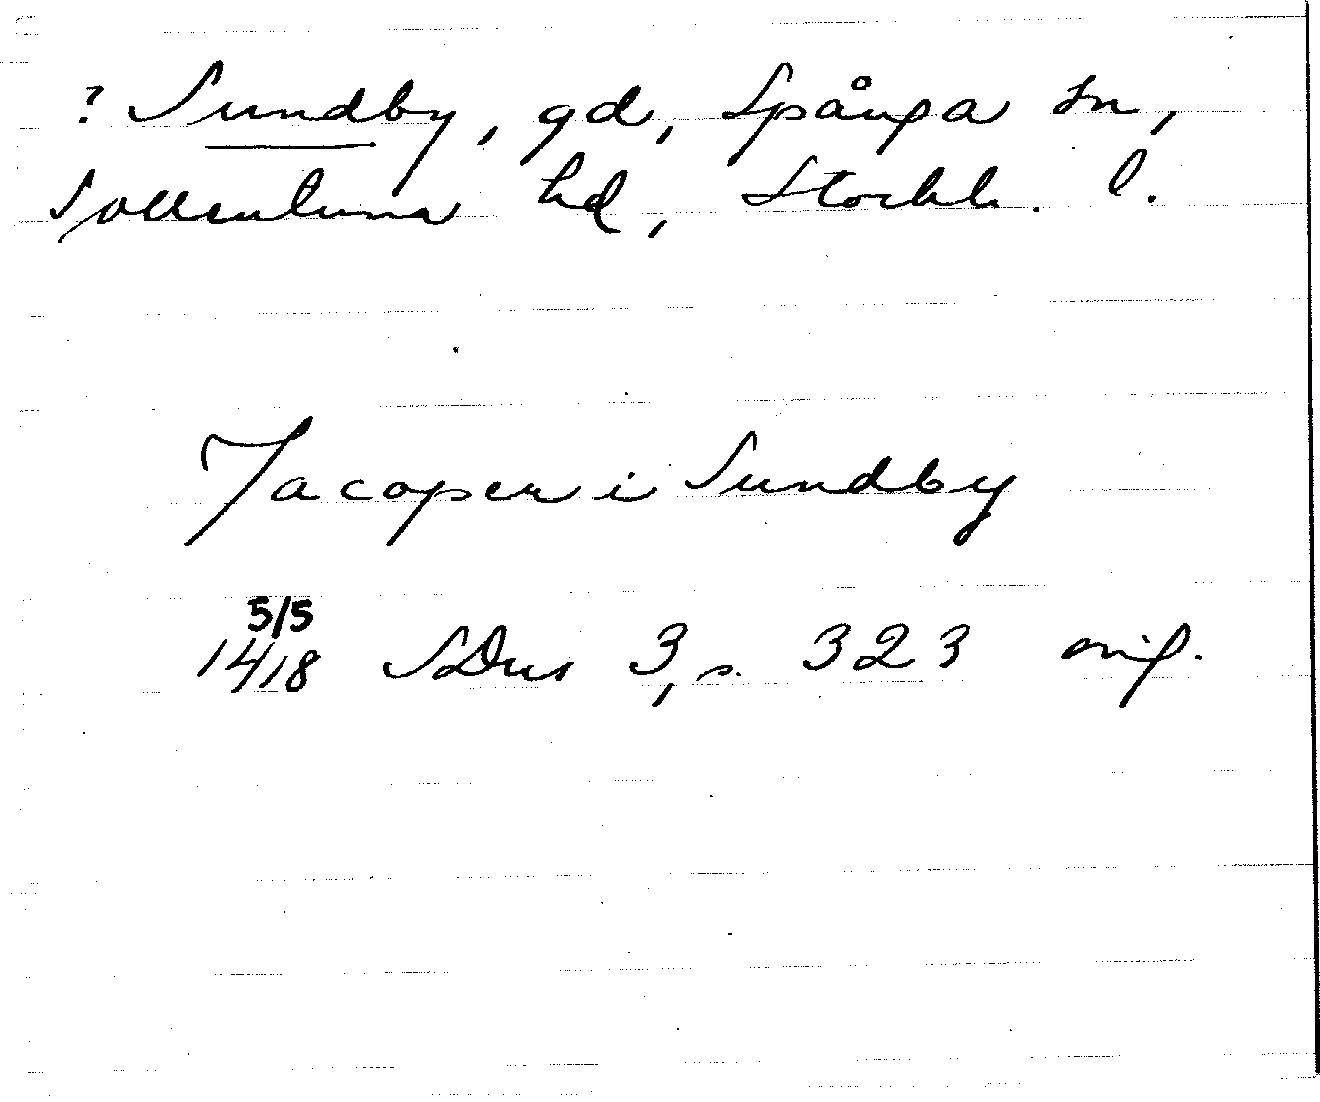 ? Sundby, gd, Spånga sn,
Sollentuna hd, Stockh. l.
Jacoper i Sundby
5/5
1418 SDns 3, s. 323 orig.